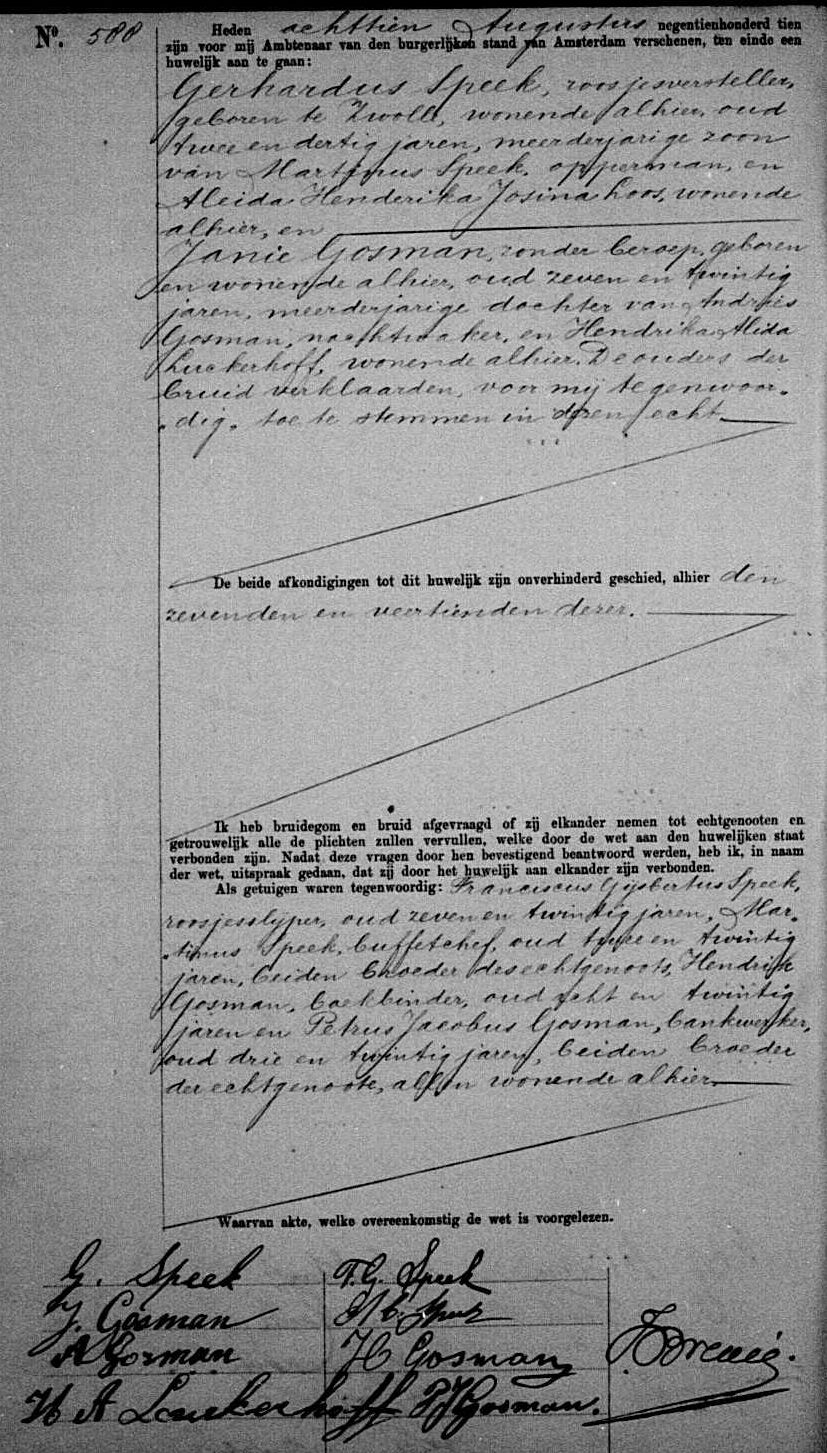 No. 588
Heden achttien Augustus negentienhonderd tien
zijn voor mij Ambtenaar van den burgerlijken stand van Amsterdam verschenen, ten einde een
huwelijk aan te gaan:
Gerhardus Speek, roosjesversteller,
geboren te Zwolle, wonende alhier, oud
twee en dertig jaren, meerderjarige zoon
van Martinus Speek, opperman, en
Aleida Henderika Josina Loos, wonende
alhier, en
Janie Gosman, zonder beroep, geboren
en wonende alhier, oud zeven en twintig
jaren, meerderjarige dochter van Andries
Gosman, nachtwaker, en Hendrika Alida
Luckerhoff, wonende alhier. De ouders der
bruid verklaarden, voor mij tegenwoor-
dig, toe te stemmen in dezen echt
De beide afkondigingen tot dit huwelijk zijn onverhinderd geschied, alhier den
zevenden en veertienden dezer.
Ik heb bruidegom en bruid afgevraagd of zij elkander nemen tot echtgenooten en
getrouwelijk alle de plichten zullen vervullen, welke door de wet aan den huwelijken staat
verbonden zijn. Nadat deze vragen door hen bevestigend beantwoord werden, heb ik, in naam
der wet, uitspraak gedaan, dat zij door het huwelijk aan elkander zijn verbonden.
Als getuigen waren tegenwoordig: Franciscus Gijsbertus Speek,
roosjesslyper, oud zeven en twintig jaren, Mar-
tinus Speek, buffetchef, oud twee en twintig
jaren, beiden broeder des echtgenoots, Hendrik
Gosman, boekbinder, oud acht en twintig
jaren en Petrus Jacobus Gosman, bankwerker,
oud drie en twintig jaren, beiden broeder
der echtgenoote, allen wonende alhier.
Waarvan akte, welke overeenkomstig de wet is voorgelezen.
G. Speek F. G. Speek
J. Gosman Speek
A Gosman H Gosman
H A Luckerhoff P J Gosman.